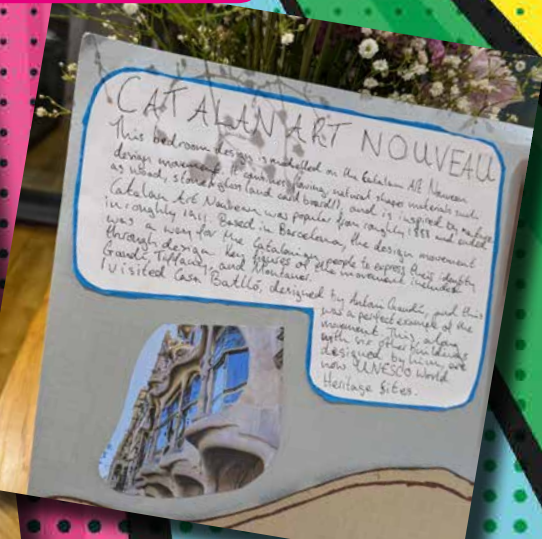 CATALAN ART NOUVEAU
This bedroom design is modelled on the Catalan Art Nouveau
design movement. It combines flowing, natural shapes materials such
as wood, stone & glass (and cardboard!), and is inspired by nature.
Catalan Art Nouveau was popular from roughly 1888 and ended
in roughly 1911. Based in Barcelona, the design movement
was a way for the Catalonian people to express their identity
through design. Key figures of the movement includes
Gaudí, Tiffany, and Montaner.
I visited Casa Batlló, designed by Antoni Gaudí, and this
was a perfect example of the
movement. This, along
with six other buildings
designed by him, are
now UNESCO World
Heritage Sites.